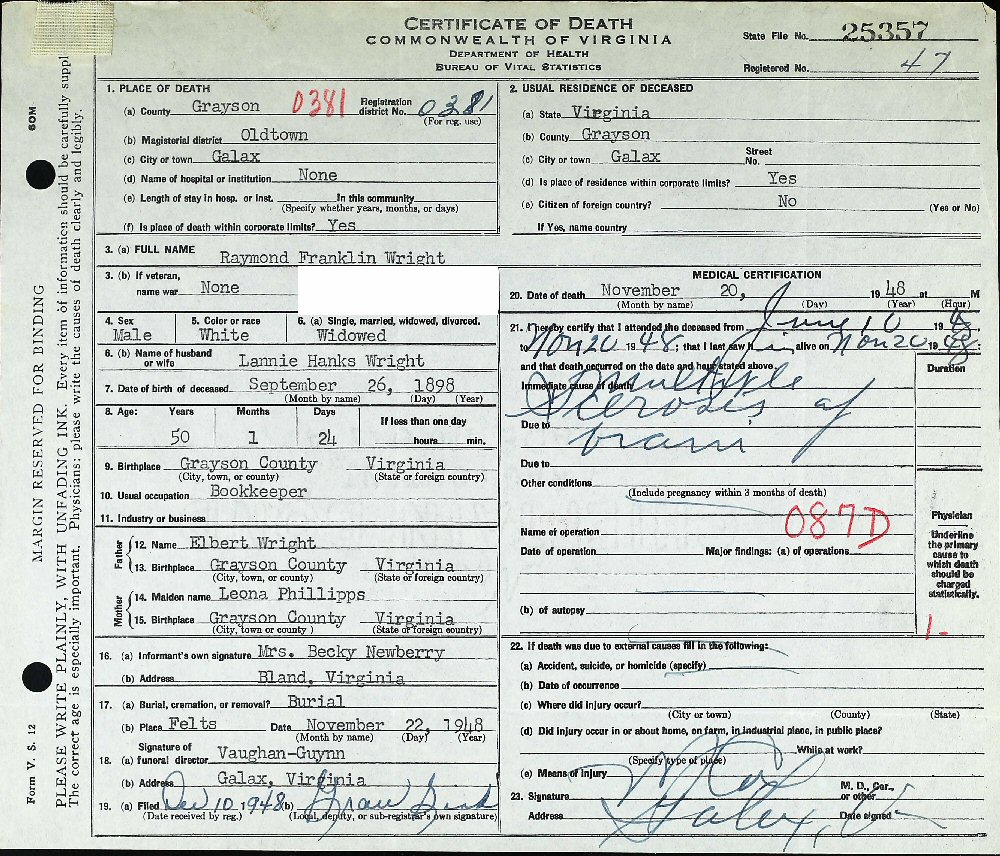 CERTIFICATE OF DEATH
COMMONWEALTH OF VIRGINIA
DEPARTMENT OF HEALTH
BUREAU OF VITAL STATISTICS
State File No. 25357
Registered No. 47
1. PLACE OF DEATH
(a) County Grayson 0381 Registration district No. 0381
(For reg. use)
(b) Magisterial district Oldtown
(c) City or town Galax
(d) Name of hospital or institution None
(e) Length of stay in hosp. or inst. In this community
(Specify whether years, months, or days)
(f) Is place of death within corporate limits? Yes
2. USUAL RESIDENCE OF DECEASED
(a) State Virginia
(b) County Grayson
(c) City or town Galax Street No.
(d) Is place of residence within corporate limits? Yes
(e) Citizen of foreign country? No (Yes or No)
If Yes, name country
3. (a) FULL NAME Raymond Franklin Wright
3. (b) If veteran, name war None
4. Sex Male
5. Color or race White
6. (a) Single, married, widowed, divorced. Widowed
6. (b) Name of husband or wife Lannie Hanks Wright
7. Date of birth of deceased September 26, 1898
(Month by name) (Day) (Year)
8. Age: Years Months Days If less than one day
50 1 24 hours min.
9. Birthplace Grayson County Virginia
(City, town, or county) (State or foreign country)
10. Usual occupation Bookkeeper
11. Industry or business
Father
12. Name Elbert Wright
13. Birthplace Grayson County Virginia
(City, town, or county) (State or foreign country)
Mother
14. Maiden name Leona Phillipps
15. Birthplace Grayson County Virginia
(City, town, or county) (State or foreign country)
16. (a) Informant's own signature Mrs. Becky Newberry
(b) Address Bland, Virginia
17. (a) Burial, cremation, or removal? Burial
(b) Place Felts Date November 22, 1948
(Month by name) (Day) (Year)
18. Signature of (a) funeral director Vaughan-Guynn
(b) Address Galax, Virginia
19. (a) Filed Dec 10, 1948 (b)
(Date received by reg.) (Local, deputy, or sub-registrar's own signature)
MEDICAL CERTIFICATION
20. Date of death November 20, 1948 at M
(Month by name) (Day) (Year) (Hour)
21. I hereby certify that I attended the deceased from June 10 19
to Nov 20 1948; that I last saw him alive on Nov 20 1948;
and that death occurred on the date and hour stated above.
Duration
Immediate cause of death Multiple
Sclerosis of
Due to brain
Due to
Other conditions
(Include pregnancy within 3 months of death)
087D
Name of operation
Date of operation Major findings: (a) of operations
(b) of autopsy
Physician
Underline the primary cause to which death should be charged statistically.
1-
22. If death was due to external causes fill in the following:
(a) Accident, suicide, or homicide (specify)
(b) Date of occurrence
(c) Where did injury occur?
(City or town) (County) (State)
(d) Did injury occur in or about home, on farm, in industrial place, in public place?
While at work?
(Specify type of place)
(e) Means of injury
23. Signature M. D., Cor., or other
Address Galax, Va Date signed
60M
MARGIN RESERVED FOR BINDING
Form V. S. 12
PLEASE WRITE PLAINLY, WITH UNFADING INK. Every item of information should be carefully suppl
The correct age is especially important. Physicians: please write the causes of death clearly and legibly.